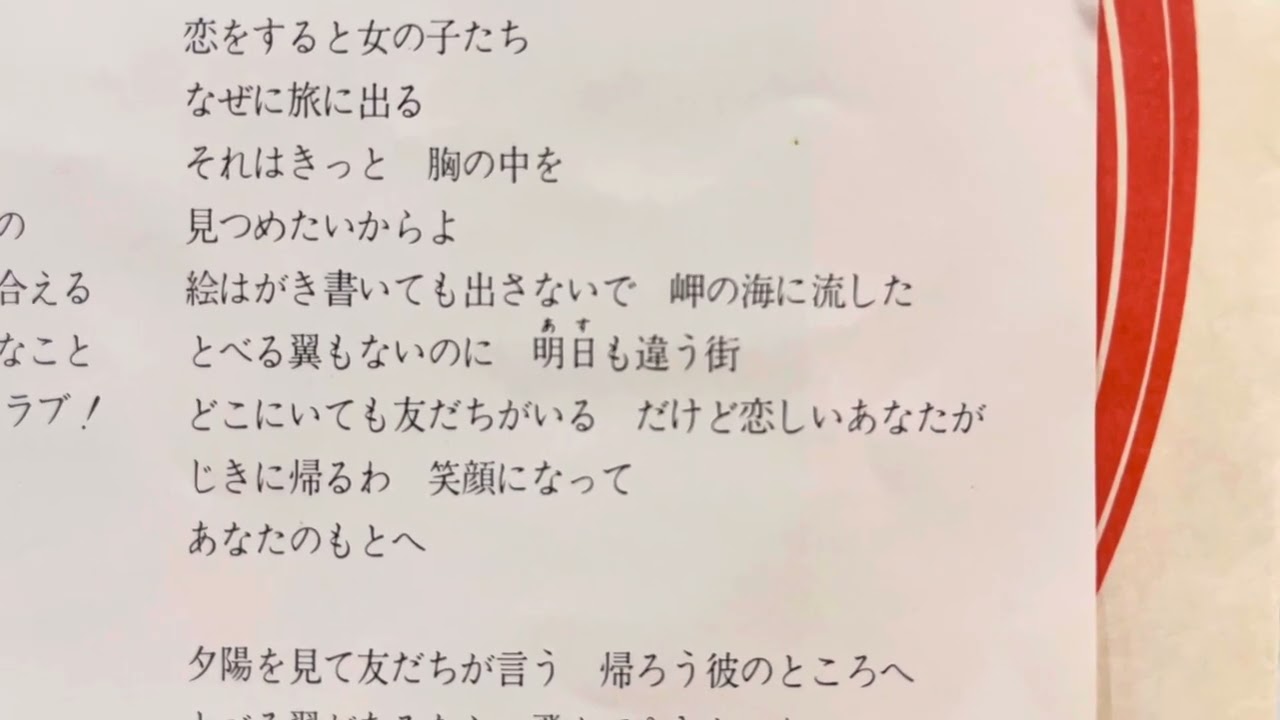 恋をすると女の子たち
なぜに旅に出る
それはきっと　胸の中を
見つめたいからよ
絵はがき書いても出さないで　岬の海に流した
とべる翼もないのに　明日も違う街
あす
どこにいても友だちがいる　だけど恋しいあなたが
じきに帰るわ　笑顔になって
あなたのもとへ
夕陽を見て友だちが言う　帰ろう彼のところへ
の
合える
なこと
ラブ！